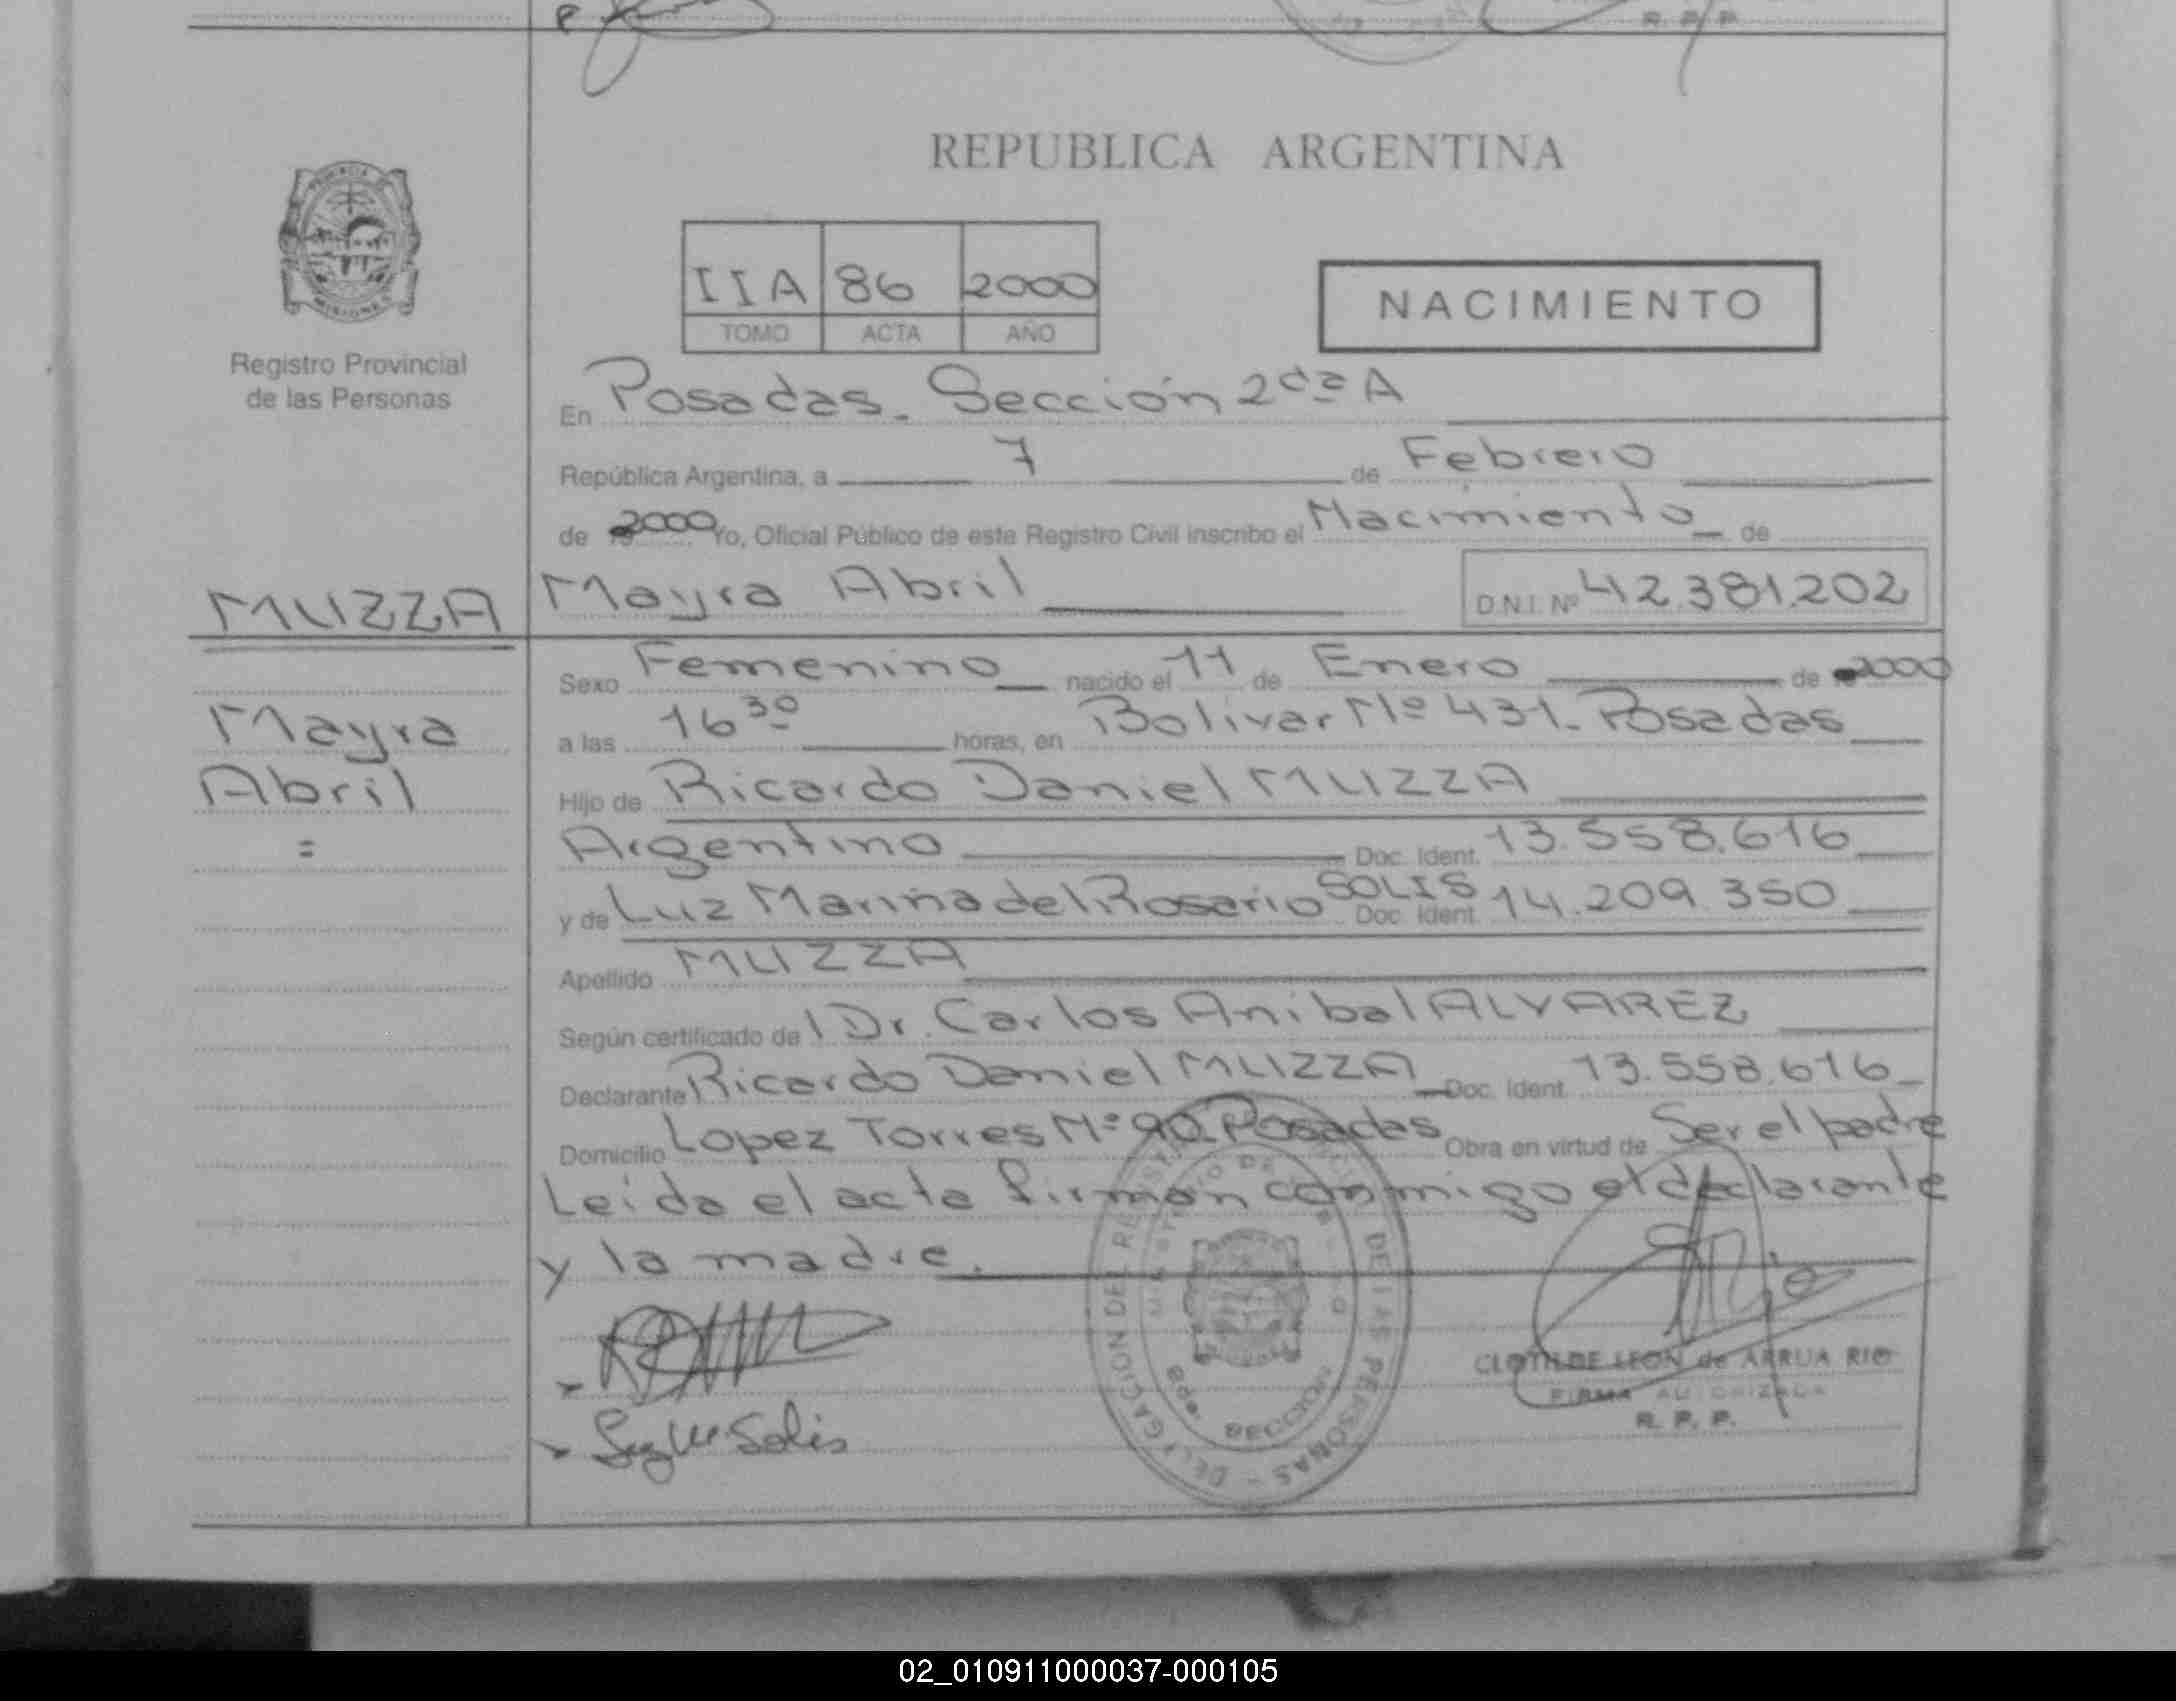 R. P. P.
REPUBLICA ARGENTINA
PROVINCIA DE
MISIONES
Registro Provincial
de las Personas
IIA 86 2000
TOMO ACTA AÑO
NACIMIENTO
En Posadas. Sección 2da A
República Argentina, a 7 de Febrero
de 2000 Yo, Oficial Público de este Registro Civil inscribo el Nacimiento de
MUZZA
Mayra Abril
D.N.I. Nº 42.381.202
Mayra
Abril
=
Sexo Femenino nacido el 11 de Enero de 2000
a las 16 30 horas, en Bolivar Nº 431. Posadas
Hijo de Ricardo Daniel MUZZA
Argentino Doc. Ident. 13.558.616
y de Luz Marina del Rosario SOLIS Doc. Ident. 14.209.350
Apellido MUZZA
Según certificado de l Dr. Carlos Anibal ALVAREZ
Declarante Ricardo Daniel MUZZA Doc. Ident. 13.558.616
Domicilio Lopez Torres Nº 90. Posadas Obra en virtud de Ser el padre
Leida el acta firman conmigo el declarante
y la madre.
CLOTILDE LEON de ARRUA RIO
FIRMA AUTORIZADA
R. P. P.
Luz M Solis
DE LAS PERSONAS
SECCION
02_010911000037-000105